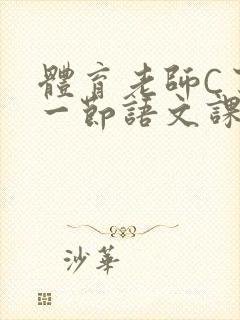 體育老師C
一節語文課
沙華